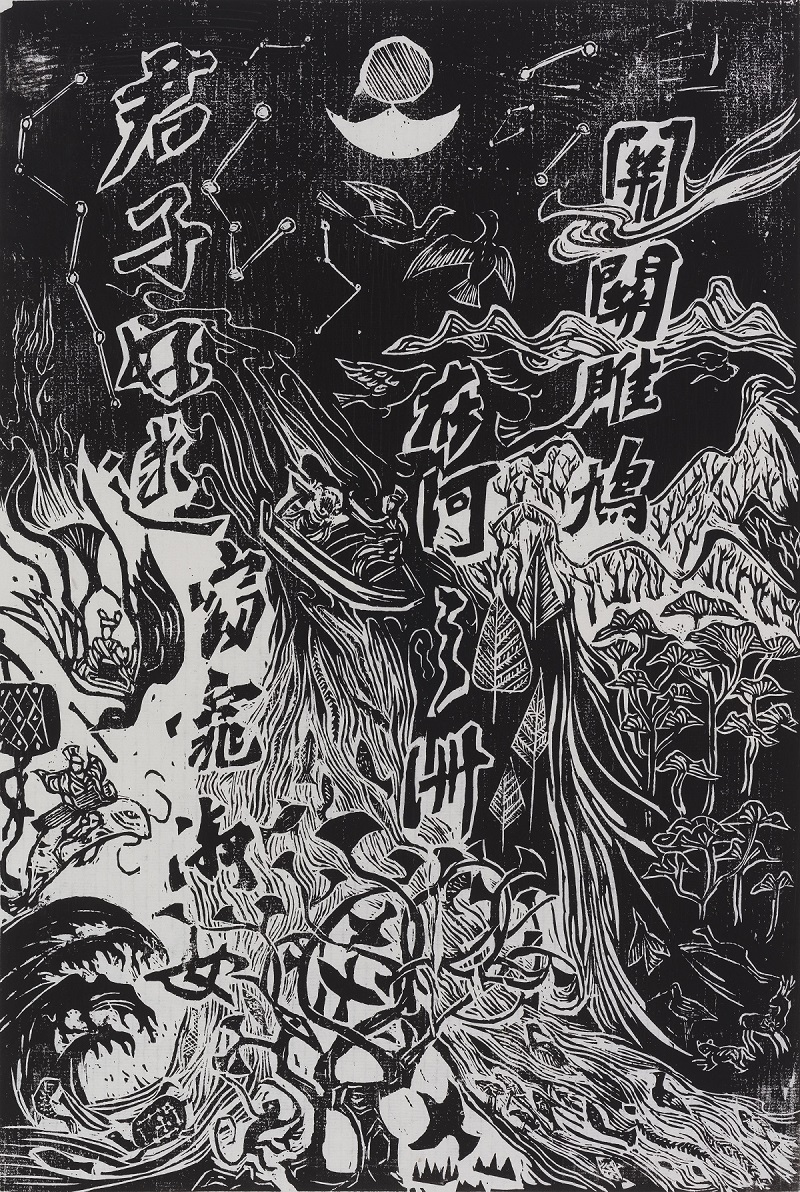 關關雎鳩
在河之洲
窈窕淑女
君子好逑